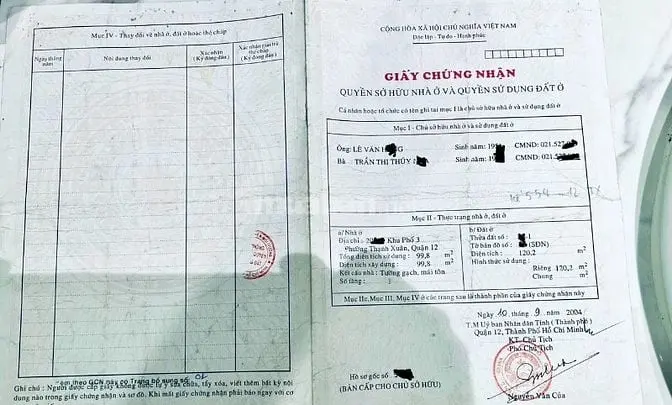 Mục IV - Thay đổi về nhà ở, đất ở hoặc thế chấp
Ngày tháng năm
Nội dung thay đổi
Xác nhận (Ký đóng dấu)
Xác nhận giải trừ thế chấp (Ký đóng dấu)
Kèm theo GCN này có Trang bổ sung số: 01
Ghi chú : Người được cấp giấy không được tự ý sửa chữa, tẩy xóa, viết thêm bất kỳ nội
dung nào trong giấy chứng nhận và sơ đồ. Khi mất giấy chứng nhận phải báo ngay với cơ
CỘNG HÒA XÃ HỘI CHỦ NGHĨA VIỆT NAM
Độc lập - Tự do - Hạnh phúc
GIẤY CHỨNG NHẬN
QUYỀN SỞ HỮU NHÀ Ở VÀ QUYỀN SỬ DỤNG ĐẤT Ở
Cá nhân hoặc tổ chức có tên ghi tại mục I là chủ sở hữu nhà ở và sử dụng đất ở
Mục I - Chủ sở hữu nhà ở và sử dụng đất ở
Ông: LÊ VĂN Sinh năm: CMND: 021.527
Bà TRẦN THỊ THÚY Sinh năm: CMND: 021.
Mục II - Thực trạng nhà ở, đất ở
a/ Nhà ở
Địa chỉ : Khu Phố 3
Phường Thạnh Xuân, Quận 12
Tổng diện tích sử dụng : 99,8 m2
Diện tích xây dựng : 99,8 m2
Kết cấu nhà : Tường gạch, mái tôn.
Số tầng :
b/ Đất ở
Thửa đất số : -1
Tờ bản đồ số : (SĐN)
Diện tích : 120,2 m2
Hình thức sử dụng :
Riêng : 120,2 m2
Chung : m2
Mục IIc, Mục III, Mục IV ở các trang sau là thành phần của giấy chứng nhận này
Ngày 10 tháng 9 năm 2004
T.M Uỷ ban Nhân dân Tỉnh (Thành phố)
Quận 12, Thành Phố Hồ Chí Minh
KT. Chủ Tịch
Phó Chủ Tịch
Hồ sơ gốc số :
(BẢN CẤP CHO CHỦ SỞ HỮU)
Nguyễn Văn Của